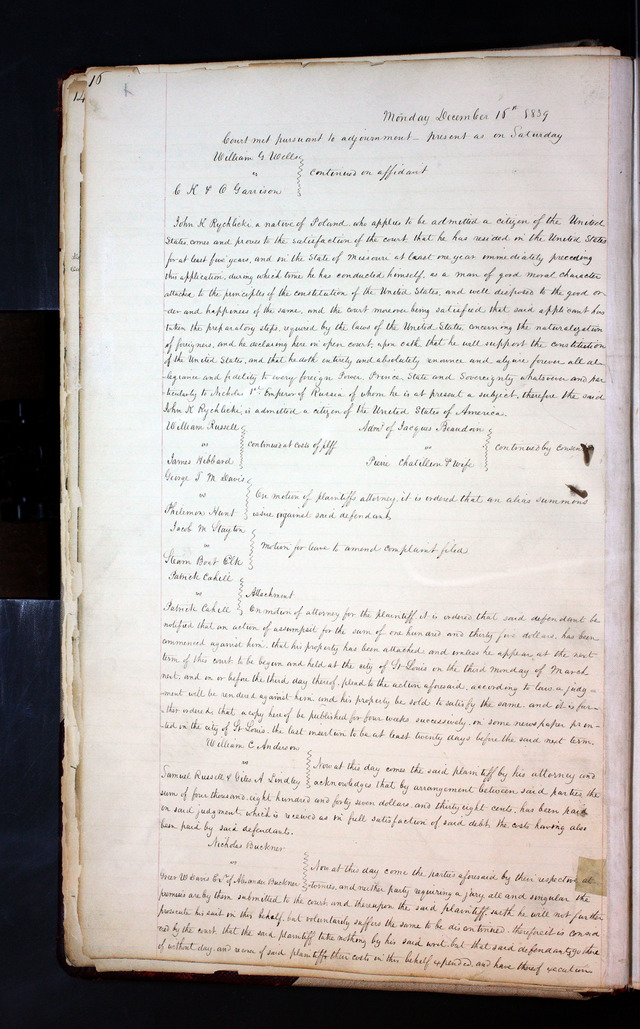 16
14
Monday December 16th 1839
Court met pursuant to adjournment - present as on Saturday
William G Wells
vs continued on affidavit
C K & O Garrison
John K Rychlicki a native of Poland who applies to be admitted a citizen of the United
States, comes and proves to the satisfaction of the court that he has resided in the United States
for at least five years, and in the State of Missouri at least one year immediately preceding
this application, during which time he has conducted himself, as a man of good moral character
attached to the principles of the constitution of the United States, and well disposed to the good or-
der and happiness of the same, and the court moreover being satisfied that said applicant has
taken the preparatory steps, required by the laws of the United States, concerning the naturalization
of foreigners, and he declaring here in open court, upon oath that he will support the constitution
of the United States, and that he doth entirely and absolutely renounce and abjure forever all al-
legiance and fidelity to every foreign Power Prince State and Sovereignty whatsoever, and par
ticularly to Nicholas 1st Emperor of Russia of whom he is at present a subject, therefore the said
John K Rychlicki is admitted a citizen of the United States of America.
William Russell
vs continued at costs of plff
James Hibbard
Admr of Jacques Beaudoin
vs continued by consent
Pierre Chatillion & wife
George S M Davis
vs On motion of plaintiffs attorney, it is ordered that an alias summons
Philemon Hunt issue against said defendant,
Jacob M Slayton
vs Motion for leave to amend complaint filed
Steam Boat Elk
Patrick Cahill
vs Attachment
Patrick Cahill On motion of attorney for the plaintiff it is ordered that said defendant be
notified that an action of assumpsit for the sum of one hundred and thirty five dollars, has been
commenced against him, that his property has been attached and unless he appear at the next
term of this court to be begun and held at the city of St Louis on the third monday of March
next, and on or before the third day thereof, plead to the action aforesaid, according to law, a judg-
ment will be rendered against him and his property be sold to satisfy the same, and it is fur-
ther ordered that a copy hereof be published for four weeks successively, in some newspaper prin-
ted in the city of St Louis, the last insertion to be at least twenty days before the said next term.
William C Anderson
vs Now at this day comes the said plaintiff by his attorney and
Samuel Russell & Giles A Lindley acknowledges that by arrangement between said parties, the
sum of four thousand, eight hundred and forty seven dollars, and thirty eight cents, has been paid
on said judgment, which is received as in full satisfaction of said debt, the costs having also
been paid by said defendants.
Nicholas Buckner
vs Now at this day come the parties aforesaid by their respective at-
Greer W Davis Exr of Alexander Buckner tornies, and neither party requiring a jury all and singular the
premises are by them submitted to the court and thereupon the said plaintiff saith he will not further
prosecute his suit in this behalf, but voluntarily suffers the same to be discontinued. therefore it is consid
ered by the court, that the said plaintiff take nothing by his said writ, but that said defendant, go there
of without day, and recover of said plaintiff their costs in this behalf expended, and have thereof execution